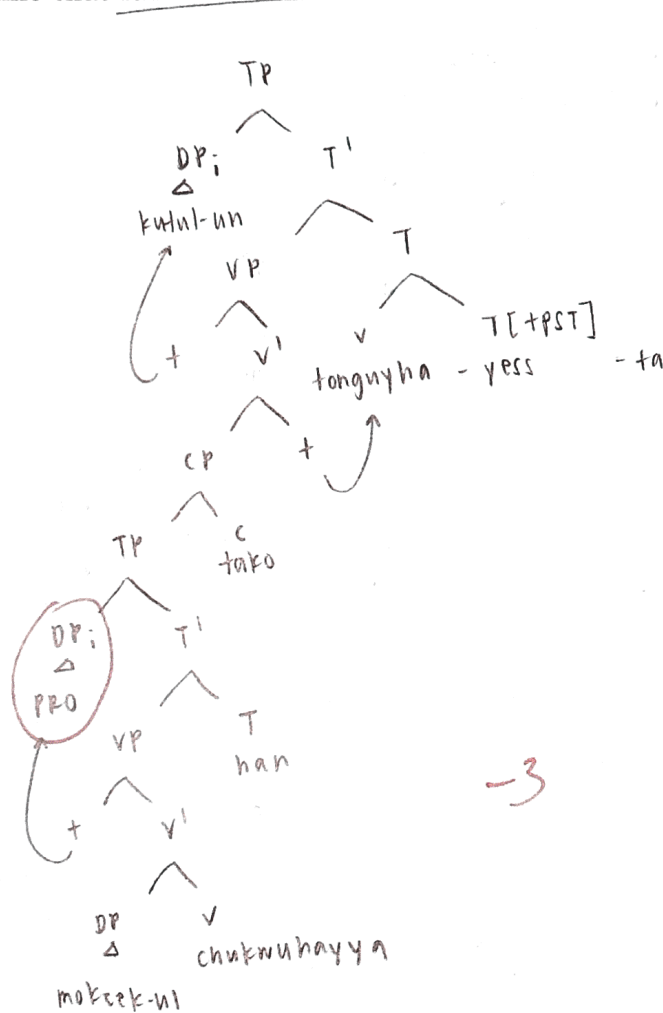 TP
DPᵢ T'
kulul-un
VP T
t V' V T[+PST]
tonguyha - yess - ta
CP t
TP C
tako
DPᵢ T'
PRO
VP T
han
-3
t V'
DP V
chukwuhayya